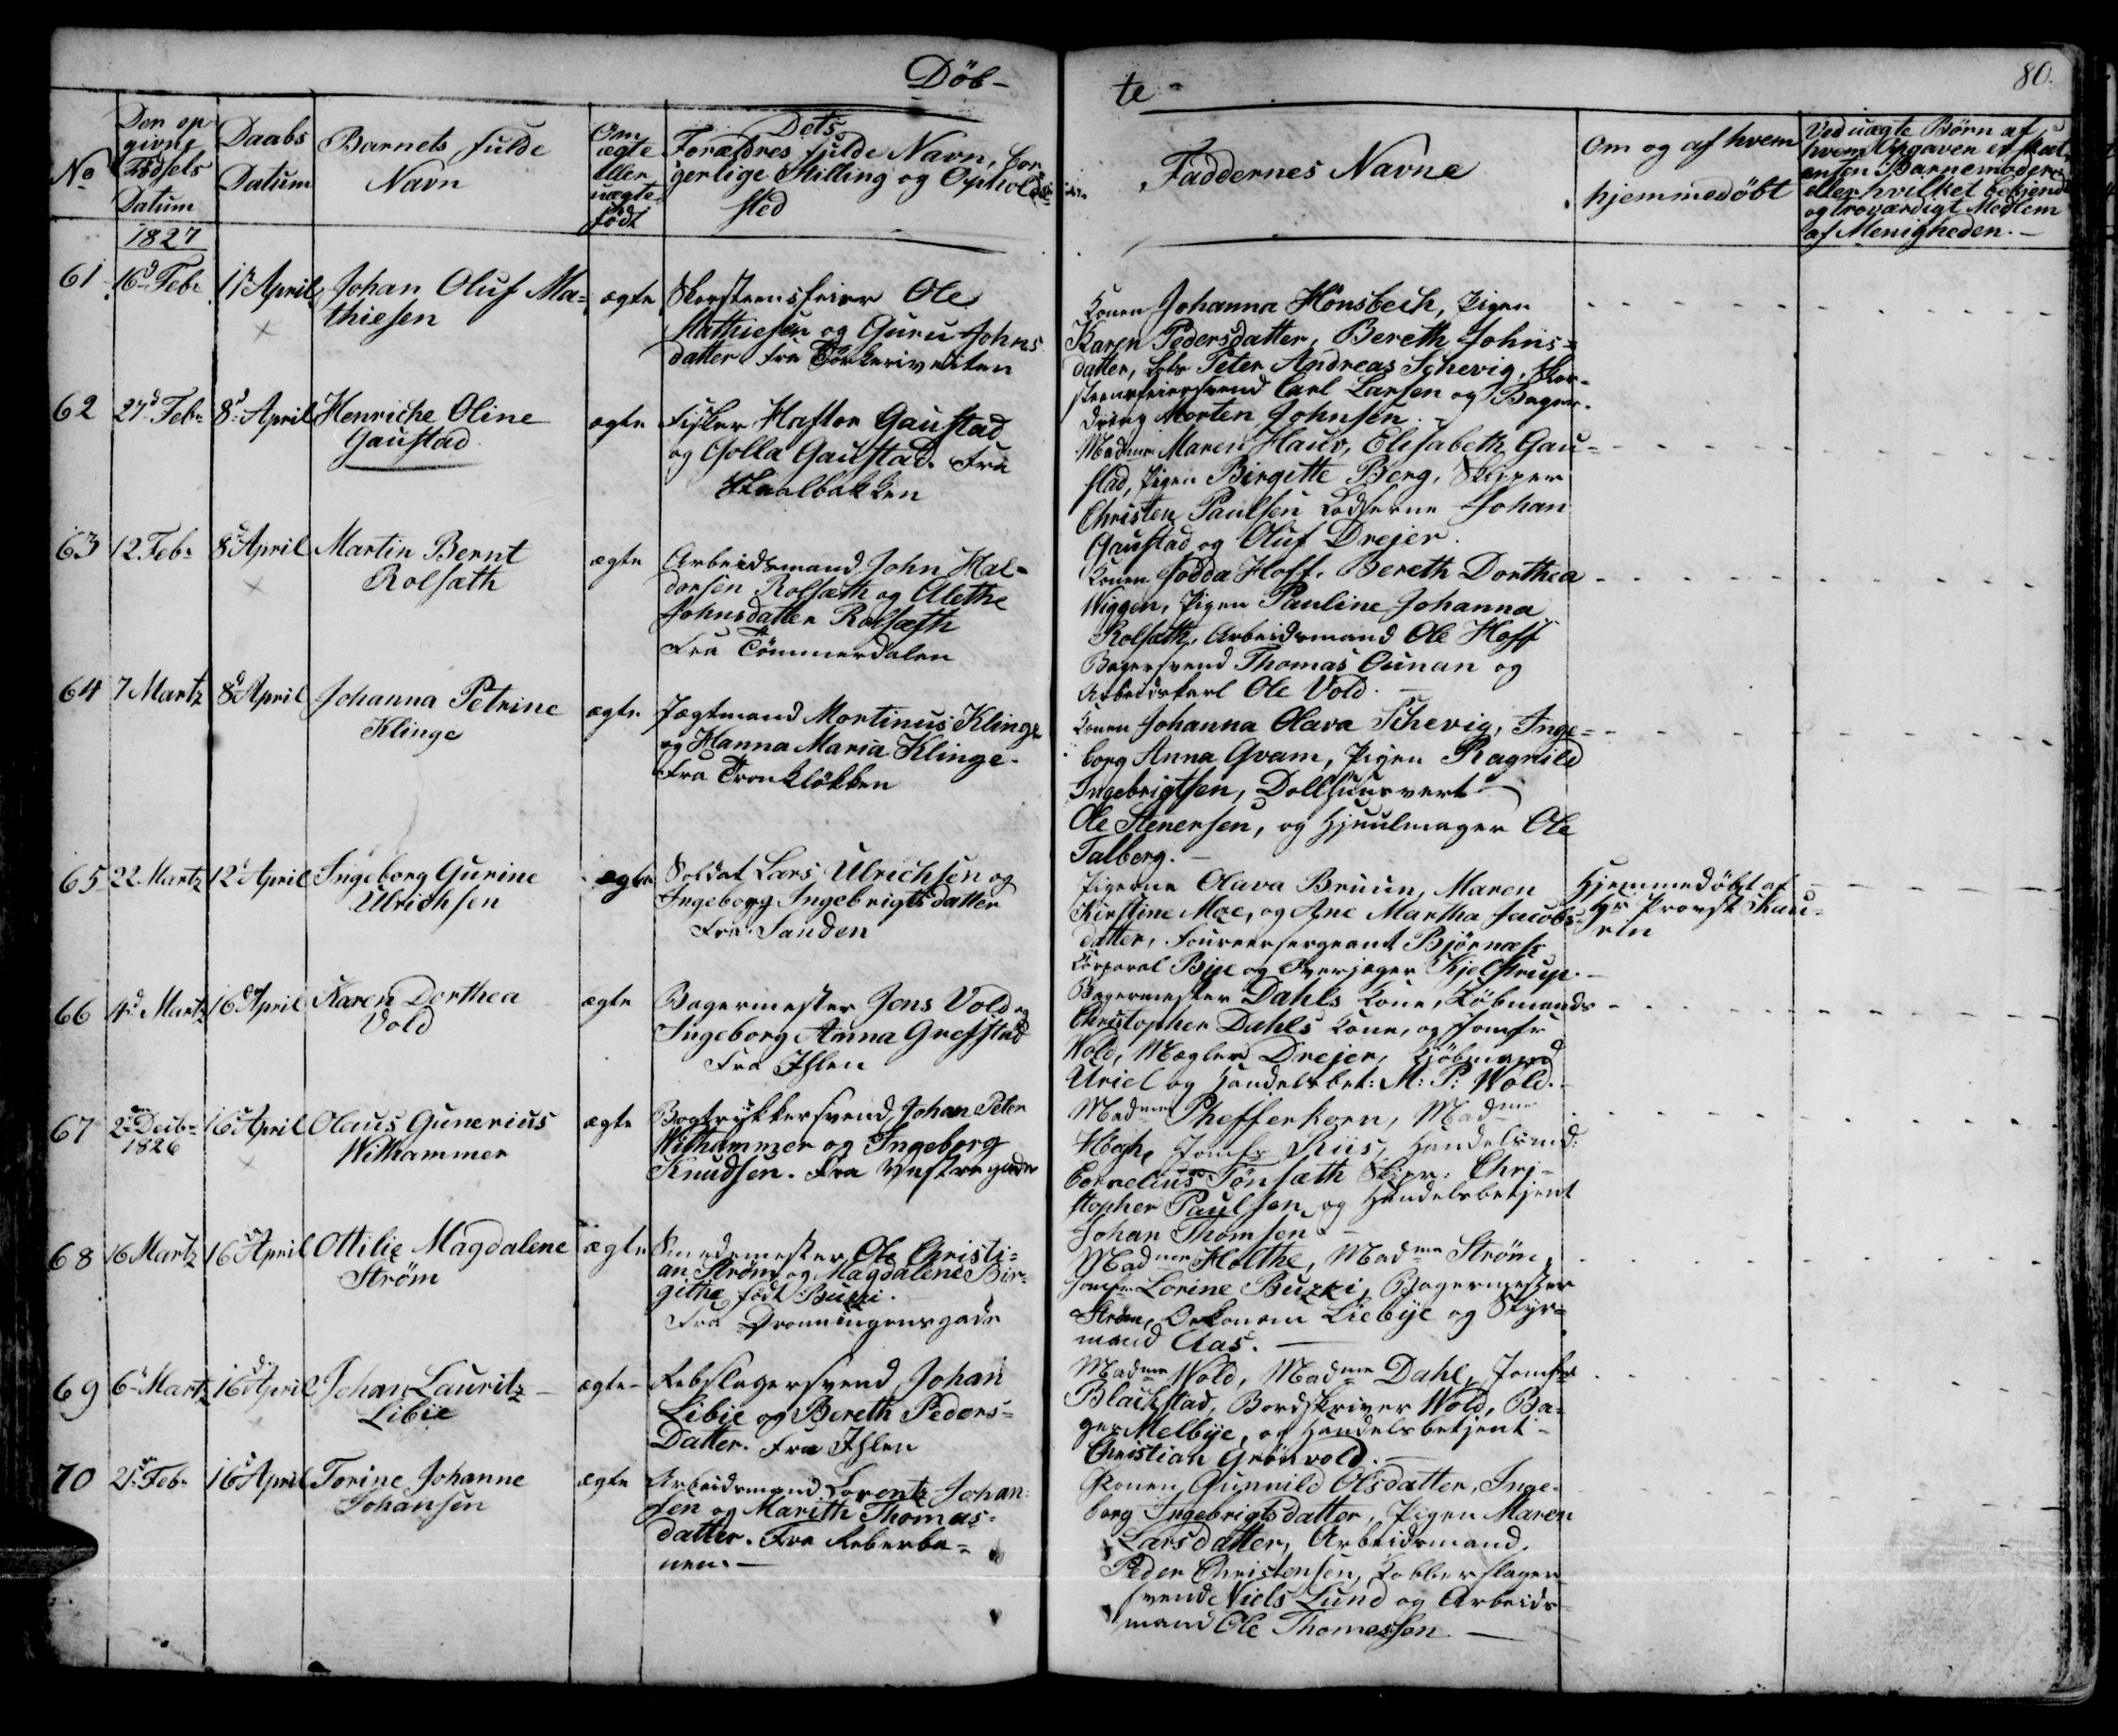 Döb-
te
80.
No
Den op
givne
Födsels
Datum
Daabs
Datum
Barnets fulde
Navn
Om
ægte
eller
uægte
födt
Dets
Forældres fulde Navn, bor-
gerlige Stilling og Opholds-
sted
Faddernes Navne
Om og af hvem
hjemmedöbt
Ved uægte Börn af
hvem Opgaven er skeet
enten Barnemoderen
eller hvilket bekjendt
og troværdigt Medlem
af Menigheden.
1827
61
16d Febr
1ste April
Johan Oluf Ma-
thiesen
ægte
Skorsteensfeier Ole
Mathiesen og Guru Johns
datter fra
Konen Johanna Hönsbech, Pigen
Karen Pedersdatter, Bereth Johns-
datter, Peter Andreas Schevig, Skor-
steensfeiersvend Carl Larsen og Bager-
dreng Morten Johnsen.
62
27d Febr
8d April
Henriche Oline
Gaustad
ægte
Fisker Haftor Gaustad
og Golla Gaustad. Fra
Madme Maren Hauv, Elisabeth Gau-
stad, Pigen Birgitte Berg, Skipper
Christen Paulsen Lodserne Johan
Gaustad og Oluf Drejer.
63
12. Febr
8d April
Martin Bernt
Rolsæth
ægte
Arbeidsmand John Hal-
dorsen Rolsæth og Alethe
Johnsdatter Rolsæth
Fra Tömmerdalen
Konen Hoff. Bereth Dorthea
Wiggen, Pigen Pauline Johanna
Rolsæth, Arbeidsmand Ole Hoff
Bagersvend Thomas Cunan og
Arbeidskarl Ole Vold.
64
7 Martz
8d April
Johanna Petrine
Klinge
ægte
Jægtmand Mortinus Klinge
og Hanna Maria Klinge.
Fra Tronklökken
Konen Johanna Olava Schevig, Inge-
borg Anna Qvam, Pigen Ragnild
Ingebrigtsen, Dollhuusvert
Ole Stenersen, og Hjuulmager Ole
Talberg.
65
22 Martz
12d April
Ingeborg Gurine
Ulrichsen
ægte
Soldat Lars Ulrichsen og
Ingeborg Ingebrigtsdatter
Fra Sanden
Pigerne Olava Bruun, Maren
Kirstine Moe, og Ane Martha Jacobs-
datter, Foureersergeant Björnæs
Corporal Bye og Overjæger Kjelstrup.
Hjemmedöbt af
Hr Provst Kau-
rin
66
4d Martz
16de April
Karen Dorthea
Vold
ægte
Bagermester Jens Vold og
Ingeborg Anna Grefstad
Fra Ihlen
Bagermester Dahls Kone, Kiöbmands
Christopher Dahls Kone, og Jomfr
Wold, Mægler Drejer, Kjöbmand
Uriel og Handelsbet: M: P: Wold.
67
2den Decbr
1826
16d April
Olaus Gunerius
Withammer
ægte
Bogtrykkersvend Johan Peter
Withammer og Ingeborg
Knudsen. Fra Vestregade
Madme Phefferkorn, Madme
Högh, Jomfr Riis, Handelsmd:
Cornelius Tönsæth Skipr: Chri-
stopher Paulsen og Handelsbetjent
Johan Thomsen
68
16 Martz
16de April
Ottilie Magdalene
Ström
ægte
Smedemester Ole Christi-
an Ström og Magdalene Bir-
githe födt Buzzi.
Fra Dronningensgade
Madme Holthe, Madme Ström,
Jomfr Lorine Buzzi, Bagermester
Ström, Oekonom Liebye og Styr-
mand Aas.
69
6d Martz
16de April
Johan Lauritz
Libie
ægte
Rebslagersvend Johan
Libie og Bereth Peders-
Datter. Fra Ihlen
Madme Wold, Madme Dahl, Jomfr
Blachstad, Bordskriver Wold, Ba-
ger Melbye, og Handelsbetjent
Christian Grönvold.
70
21de Febr
16d April
Torine Johanne
Johansen
ægte
Arbeidsmand Lorentz Johan-
sen og Marith Thomas-
datter. Fra Reberba-
nen.
Konen Gunnild Olsdatter, Inge-
borg Ingebrigtsdatter, Pigen Maren
Larsdatter, Arbeidsmand
Peder Christensen, Kobberslager
svend Niels Lund og Arbeids-
mand Ole Thomassen.